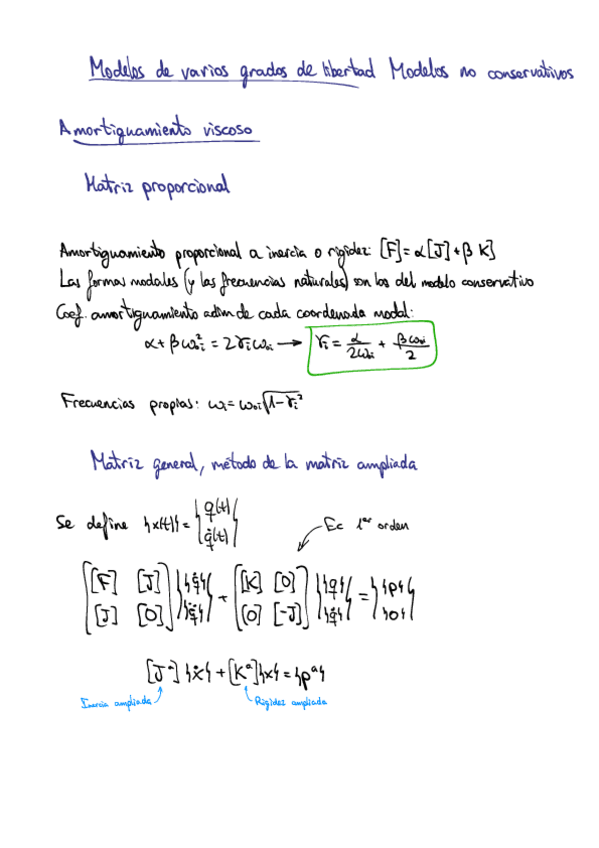 Modelos de varios grados de libertad Modelos no conservativos
Amortiguamiento viscoso
Matriz proporcional
Amortiguamiento proporcional a inercia o rigidez: [F]=α[J]+β K]
Las formas modales (y las frecuencias naturales) son las del modelo conservativo
Coef. amortiguamiento adim de cada coordenada modal:
α+βω₀ᵢ²=2γᵢω₀ᵢ → γᵢ=α/2ω₀ᵢ + βω₀ᵢ/2
Frecuencias propias: ωᵢ=ω₀ᵢ√1-γᵢ²
Matriz general, método de la matriz ampliada
Se define {x(t)}={q(t) q̇(t)}
Ec 1er orden
[[F] [J]] {{q̇}} + [[K] [0]] {{q}} = {{p}}
[[J] [0]] {{q̈}} [[0] [-J]] {{q̇}} {{0}}
[Jᵃ]{ẋ}+[Kᵃ]{x}={pᵃ}
Inercia ampliada
Rigidez ampliada